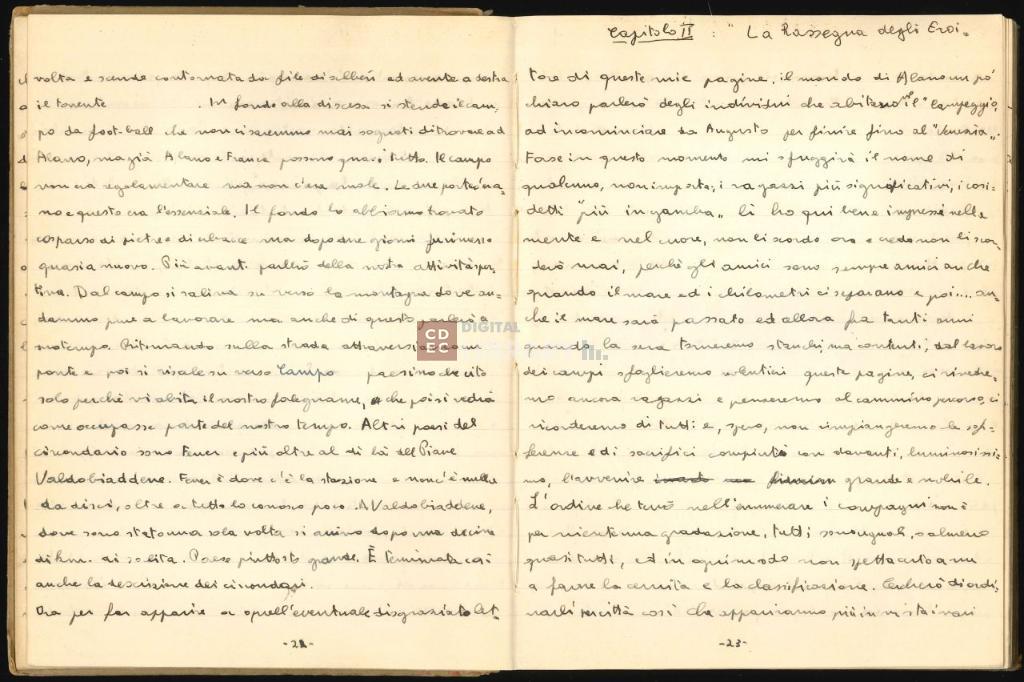 volta e scende contornata da file di alberi ed avente a destra
il torrente . In fondo alla discesa si stende il cam-
po da foot-ball che non ci saremmo mai sognati di trovare ad
Alano, ma già Alano e Francia possono quasi tutto. Il campo
non era regolamentare ma non c'era male. Le due porte c'era-
no e questo era l'essenziale. Il fondo lo abbiamo trovato
cosparso di pietre di ma dopo due giorni fu rimesso
quasi a nuovo. Più avanti parlerò della nostra attività spor-
tiva. Dal campo si saliva su verso la montagna dove an-
dammo pure a lavorare ma anche di questo parlerò a
suo tempo. Ritornando sulla strada attraversiamo un
ponte e poi si risale su verso Campo paesino che cito
solo perchè vi abita il nostro falegname, che poi si vedrà
come occupasse parte del nostro tempo. Altri paesi del
circondario sono Fener e più oltre al di là del Piave
Valdobiaddene. Fener è dove c'è la stazione e non c'è nulla
da dirci, oltre a tutto lo conosco poco. A Valdobiaddene,
dove sono stato una sola volta si arriva dopo una decina
di km. di salita. Paese piuttosto grande. È terminata così
anche la descrizione dei circondari.
Ora per far apparire a quell'eventuale disgraziato let-
-22-
Capitolo II : "La Rassegna degli Eroi"
tore di queste mie pagine, il mondo di Alano un pò
chiaro parlerò degli individui che abitano il "Campeggio",
ad incominciare da Augusto per finire fino al "Venezia".
Forse in questo momento mi sfuggirà il nome di
qualcuno, non importa; i ragazzi più significativi, i cosi-
detti "più in gamba" li ho qui bene impressi nella
mente e nel cuore, non li scordo ora e credo non li scor-
derò mai, perchè gli amici sono sempre amici anche
quando il mare ed i chilometri ci separano e poi.... an-
che il mare sarà passato ed allora fra tanti anni
quando la sera torneremo stanchi, ma contenti, dal lavoro
dei campi sfoglieremo volentieri queste pagine, ci rivedre-
mo ancora ragazzi e penseremo al cammino percorso, ci
ricorderemo di tutti e, spero, non rimpiangeremo le sof-
ferenze ed i sacrifici compiuti con davanti, luminosissi-
mo, l'avvenire grande e nobile.
L'ordine che terrò nell'enumerare i compagni non è
per niente una gradazione, tutti sono eguali, o almeno
quasi tutti, ed in ogni modo non spetta certo a me
a farne la cernita e la classificazione. Cercherò di ordi-
narli per città così che appariranno più in vista i vari
-23-
CDEC
DIGITAL
LIBRARY